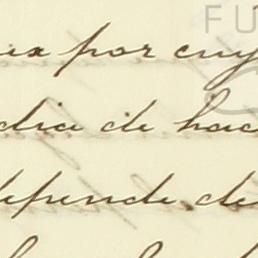 FU
por cuy
dia de hac
depende de